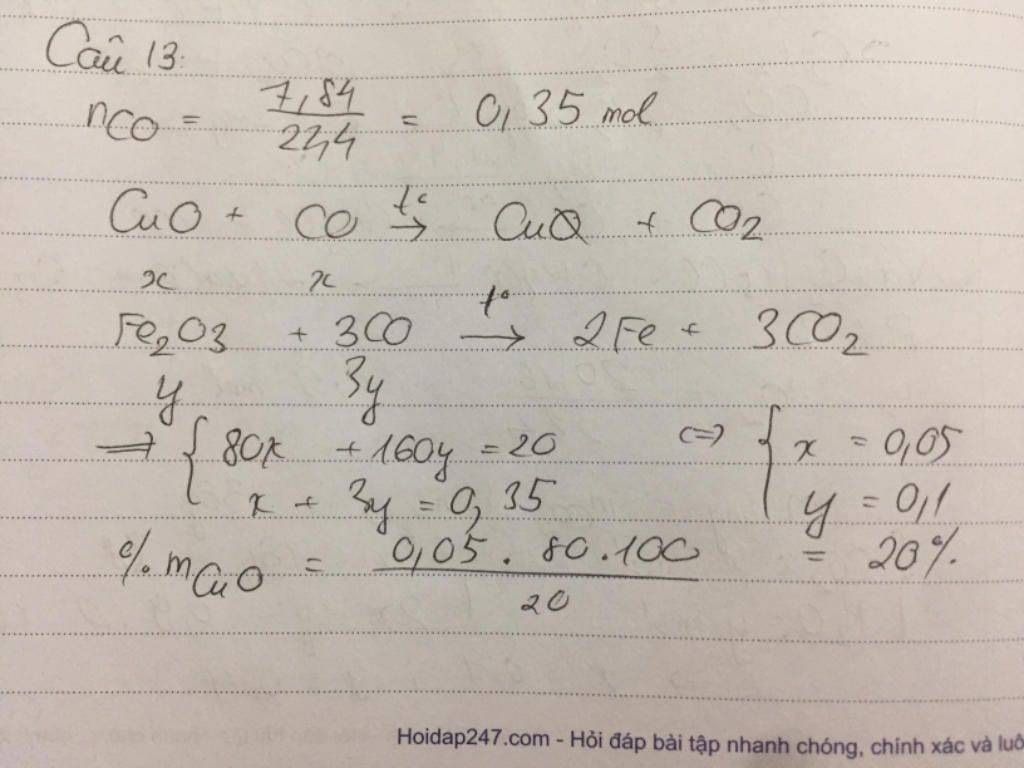 Câu 13:
nCO = 7,84/22,4 = 0,35 mol
CuO + CO t°→ Cu + CO2
x x
Fe2O3 + 3CO t°→ 2Fe + 3CO2
y 3y
⇒ { 80x + 160y = 20 <=> { x = 0,05
x + 3y = 0,35 y = 0,1
% mCuO = 0,05 . 80 . 100 / 20 = 20%
Hoidap247.com - Hỏi đáp bài tập nhanh chóng, chính xác và luô